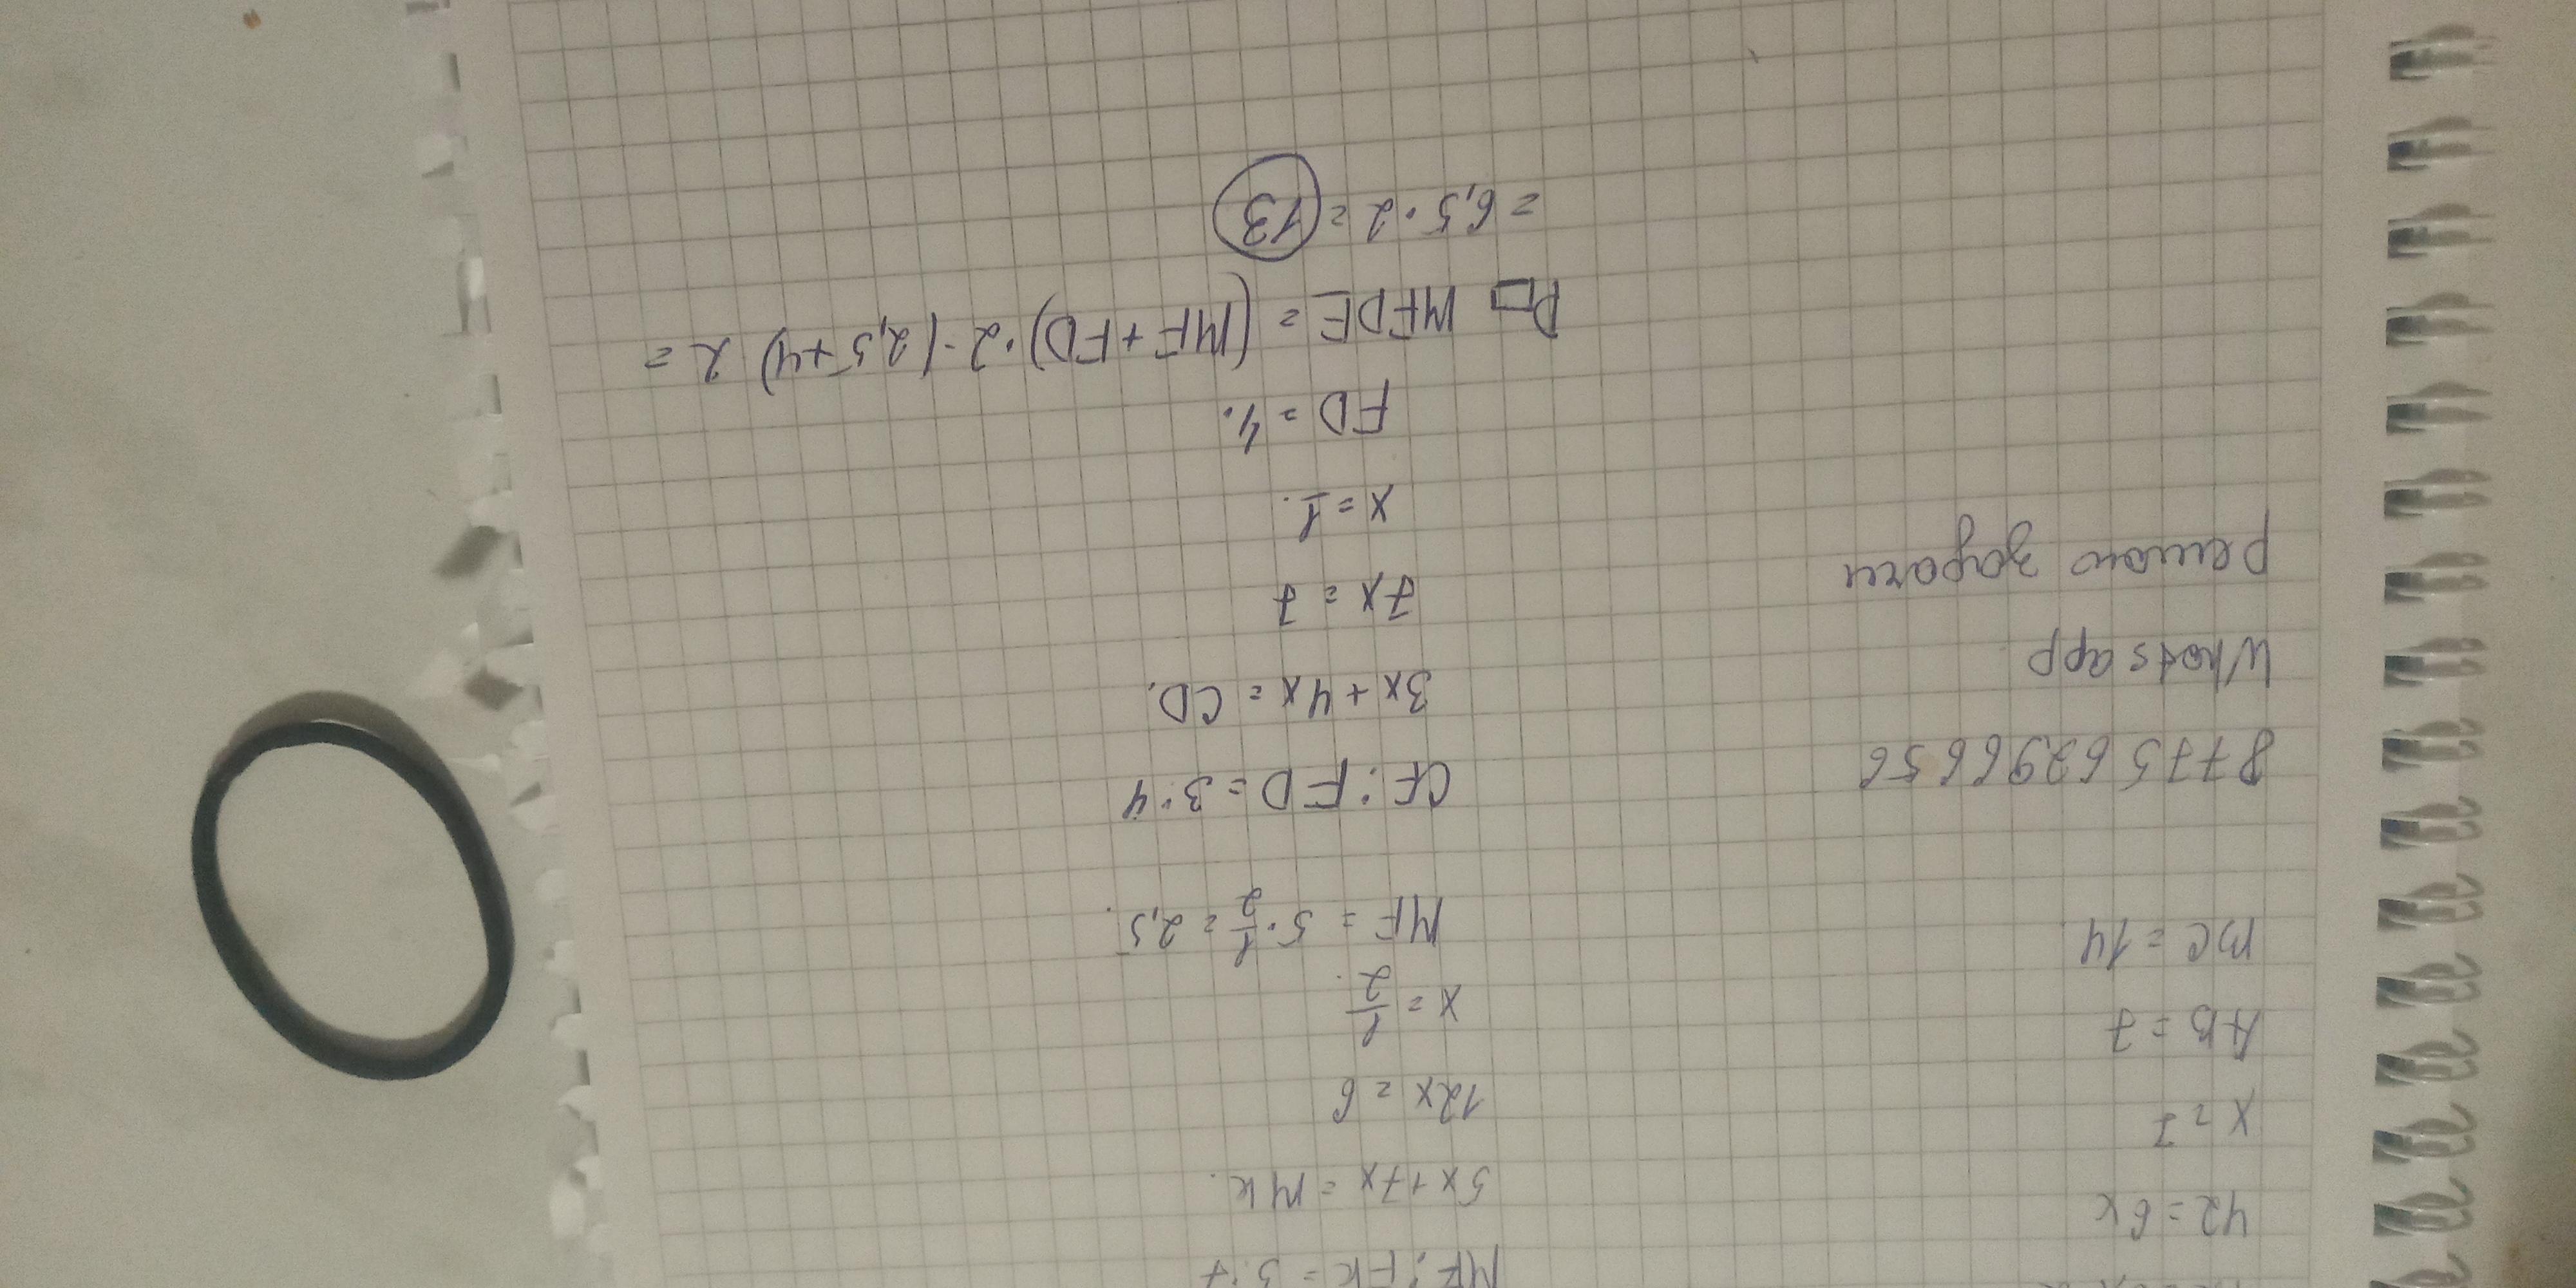 42 = 6x
x = 7
AB = 7
MC = 14.
8775 6296656
Whatsapp
решаю задачи
MF : FK = 5:7
5x+7x = MK.
12x = 6
x = 1/2.
MF = 5·1/2 = 2,5.
CF : FD = 3:4
3x + 4x = CD.
7x = 7
x = 1.
FD = 4.
P▭ MFDE = (MF+FD)·2-(2,5+4) 2 =
= 6,5·2 = 13